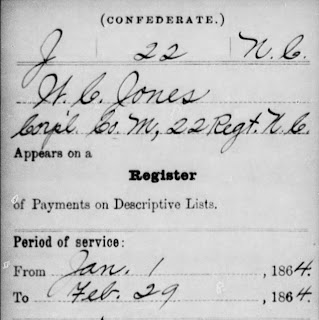 (CONFEDERATE.)
J 22 N.C.
W. C. Jones
Corpl. Co. M, 22 Regt. N.C.
Appears on a
Register
of Payments on Descriptive Lists.
Period of service:
From Jan. 1, 1864.
To Feb. 29, 1864.